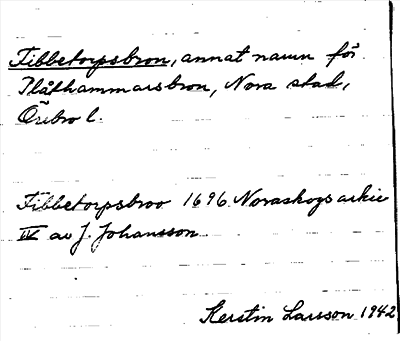 Fibbetorpsbron, annat namn för
Plåthammarsbron, Nora stad,
Örebro l.
Fibbetorpsbroo 1696 Noraskogs arkiv
IV av J. Johansson
Kerstin Larsson 1942